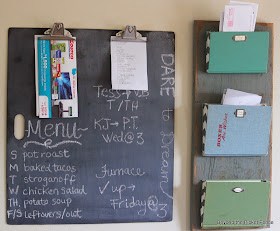 Tess → V.B.
T/TH
KJ → P.T.
Wed@3
Furnace
✓up →
Friday@3
DARE to Dream!
Menu
S pot roast
M baked tacos
T stroganoff
W chicken salad
TH. potato soup
F/S leftovers/out